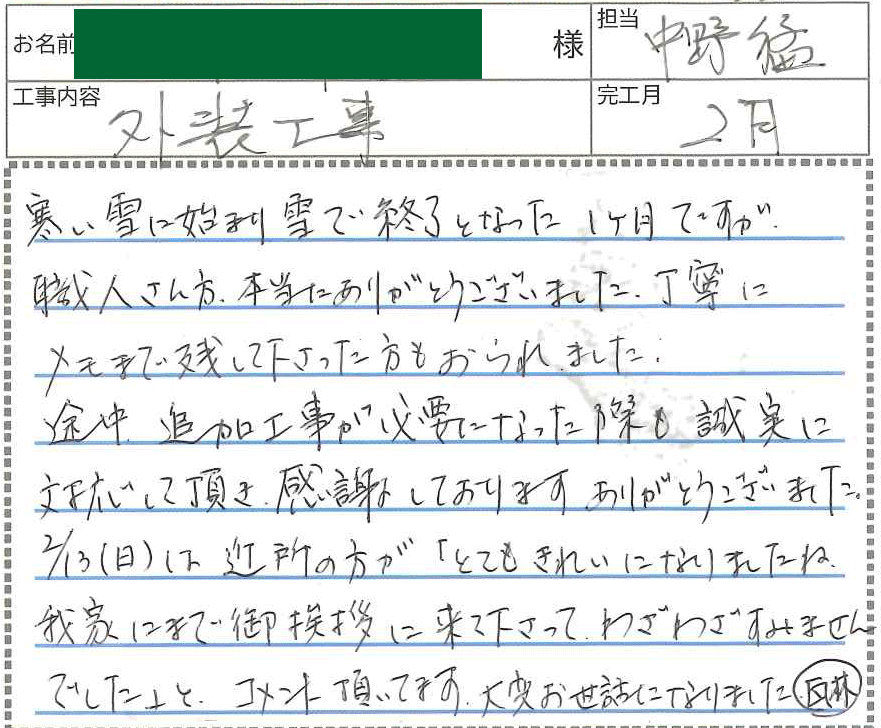 お名前 様 担当 中野 猛
工事内容 外装工事 完工月 2月
寒い雪に始まり雪で終了となった1ケ月ですが、
職人さん方、本当にありがとうございました。丁寧に
メモまで残して下さった方もおられました。
途中、追加工事が必要になった際も誠実に
対応して頂き、感謝しております ありがとうございました。
2/13(日)は近所の方が「とてもきれいになりましたね。
我家にまで御挨拶に来て下さって、わざわざすみません
でした」と、コメント頂いてます。大変お世話になりました 瓦林